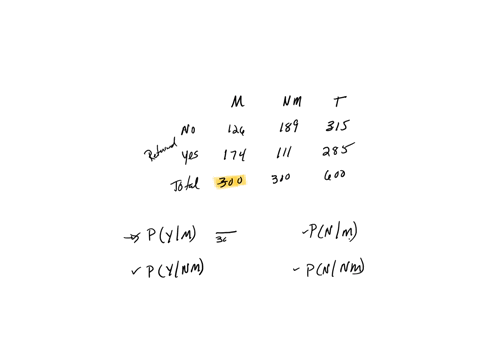 M NM T
No 126 189 315
Returned
Yes 174 111 285
Total 300 300 600
P(Y/M) —/30 - P(N/M)
✓ P(Y/NM) - P(N/NM)